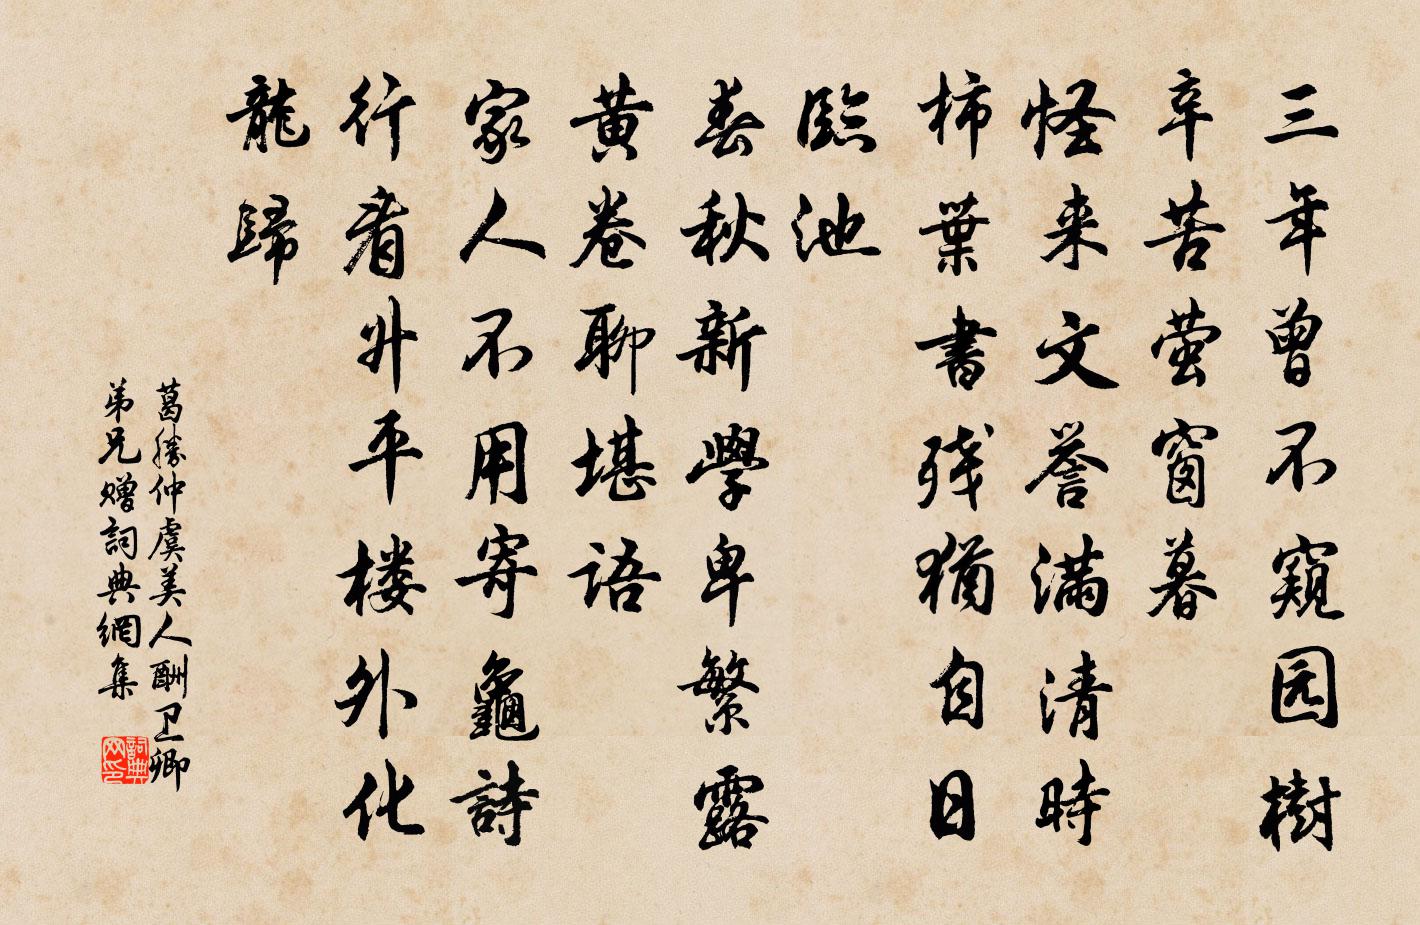 三年曾不窺园樹
辛苦萤窗暮
怪来文誉满清時
柿葉書残猶自日
臨池
春秋新學卑繁露
黄卷聊堪語
家人不用寄龜詩
行看升平楼外化
龍歸
葛勝仲虞美人酬卫卿
弟兄赠詞典網集
詞典网印